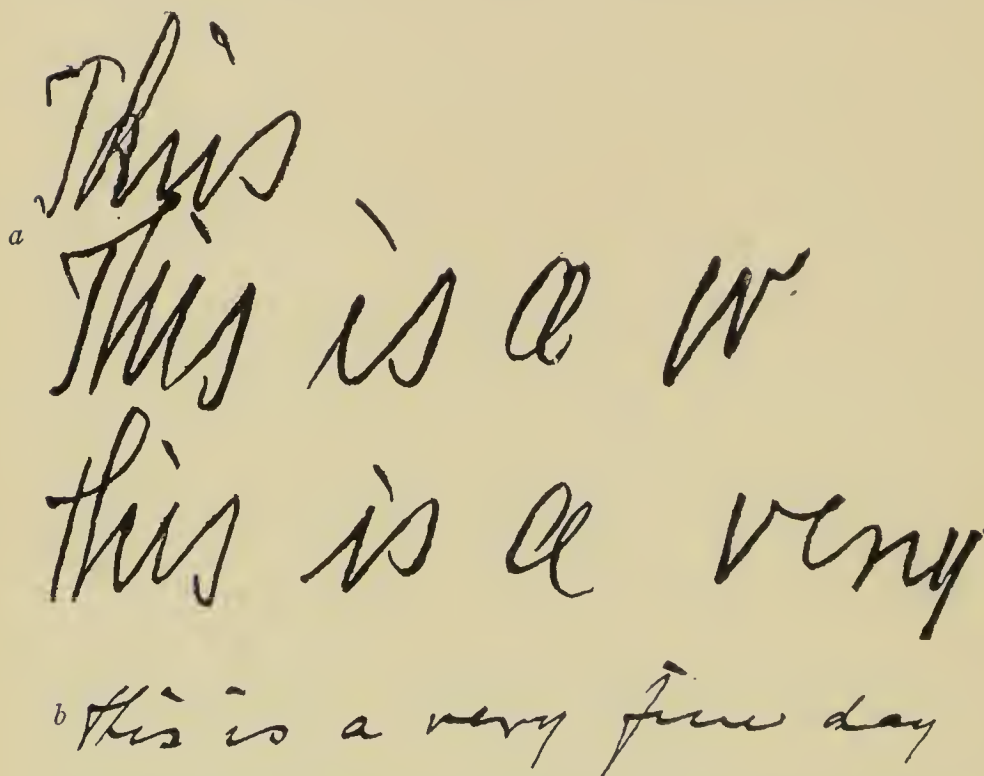 This
a
This is a w
this is a very
b this is a very fine day